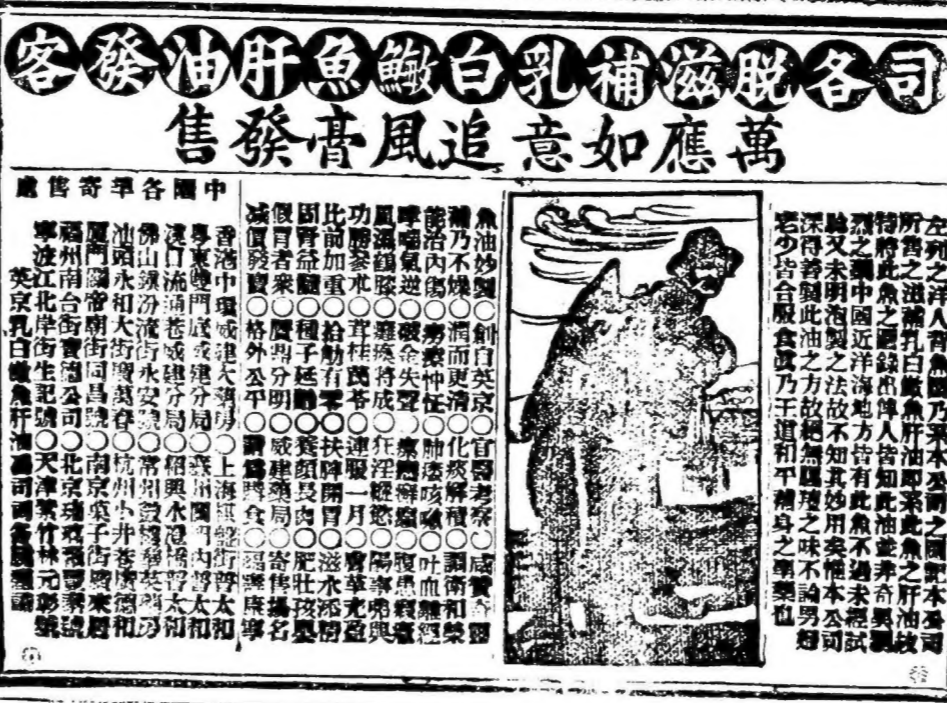 司各脱滋補乳白鰵魚肝油發客
萬應如意追風膏發售
左列之洋人背魚圖乃本公司之圖
所售之滋補乳白鰵魚肝油即此魚之肝油故
特將此魚之圖錄出俾人皆知此油並非奇異猛
烈之藥中國近洋海地方皆有此魚不過未經試
驗又未明泡製之法故不知其妙用矣惟本公司
深得善製此油之方故絕無腥羶之味不論男婦
老少皆合服食真乃王道和平補身之聖藥也
魚油妙製○創自英京○官醫考察○咸贊奇靈
補乃不燥○潤而更清○化痰解積○調衛和榮
能治內傷○癆瘵怔忡○肺痿咳嗽○吐血
哮喘氣逆○破金失聲○瘰癧癬癩○腹患
風濕鶴膝○癱瘓將成○狂淫縱慾○陽事興
功勝參朮○茸桂苓○連服一月○膚華光盈
比前加重○拾觔有零○扶脾開胃○滋水添精
固腎益髓○種子延齡○養顏長肉○肥壯孩嬰
假冒者衆○贗鼎分明○威建藥局○寄售揚名
減價發賣○格外公平○請購食○福壽康寧
中國各埠寄售處
香港中環威建大藥房○上海棋盤街普太和
粵東雙門底威建分局○蘇州閶門內普太和
漢口流通巷威建分局○紹興水澄橋普太和
佛山鎮汾流街永安號○常州鼓樓
汕頭永和大街廣萬春○杭州小井巷懷德和
廈門關帝廟街同昌號○南京菓子街
福州南台街寶德公司○北京瑞
寧波江北岸街生記號○天津紫竹林元彰號
英京乳白鰵魚肝油公司司各脫